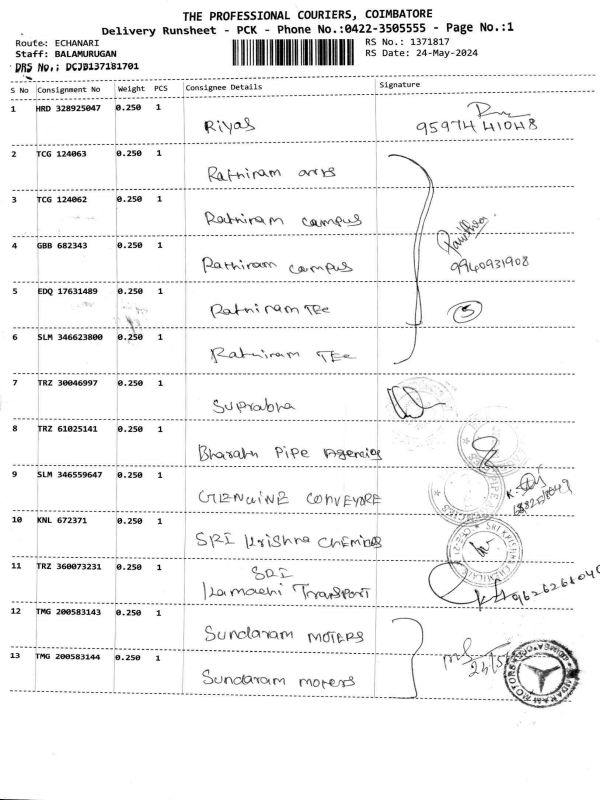 THE PROFESSIONAL COURIERS, COIMBATORE
Delivery Runsheet - PCK - Phone No.:0422-3505555 - Page No.:1
Route: ECHANARI
RS No.: 1371817
Staff: BALAMURUGAN
RS Date: 24-May-2024
DRS No.: DCJB137181701
S No Consignment No Weight PCS Consignee Details Signature
1 HRD 328925047 0.250 1 Riyas 9597441048
2 TCG 124063 0.250 1 Rathiram arts
3 TCG 124062 0.250 1 Rathiram campus
4 GBB 682343 0.250 1 Rathiram campus 9940931908
5 EDQ 17631489 0.250 1 Rathiram TEc 5
6 SLM 346623800 0.250 1 Rathiram TEc
7 TRZ 30046997 0.250 1 Suprabha
8 TRZ 61025141 0.250 1 Bharath Pipe Agencies
9 SLM 346559647 0.250 1 GENUINE CONVEYORE
10 KNL 672371 0.250 1 SRI Krishna Chemicas
11 TRZ 360073231 0.250 1 SRI
Kamachi Transport
12 TMG 200583143 0.250 1 Sundaram MOTERS
13 TMG 200583144 0.250 1 Sundaram moters